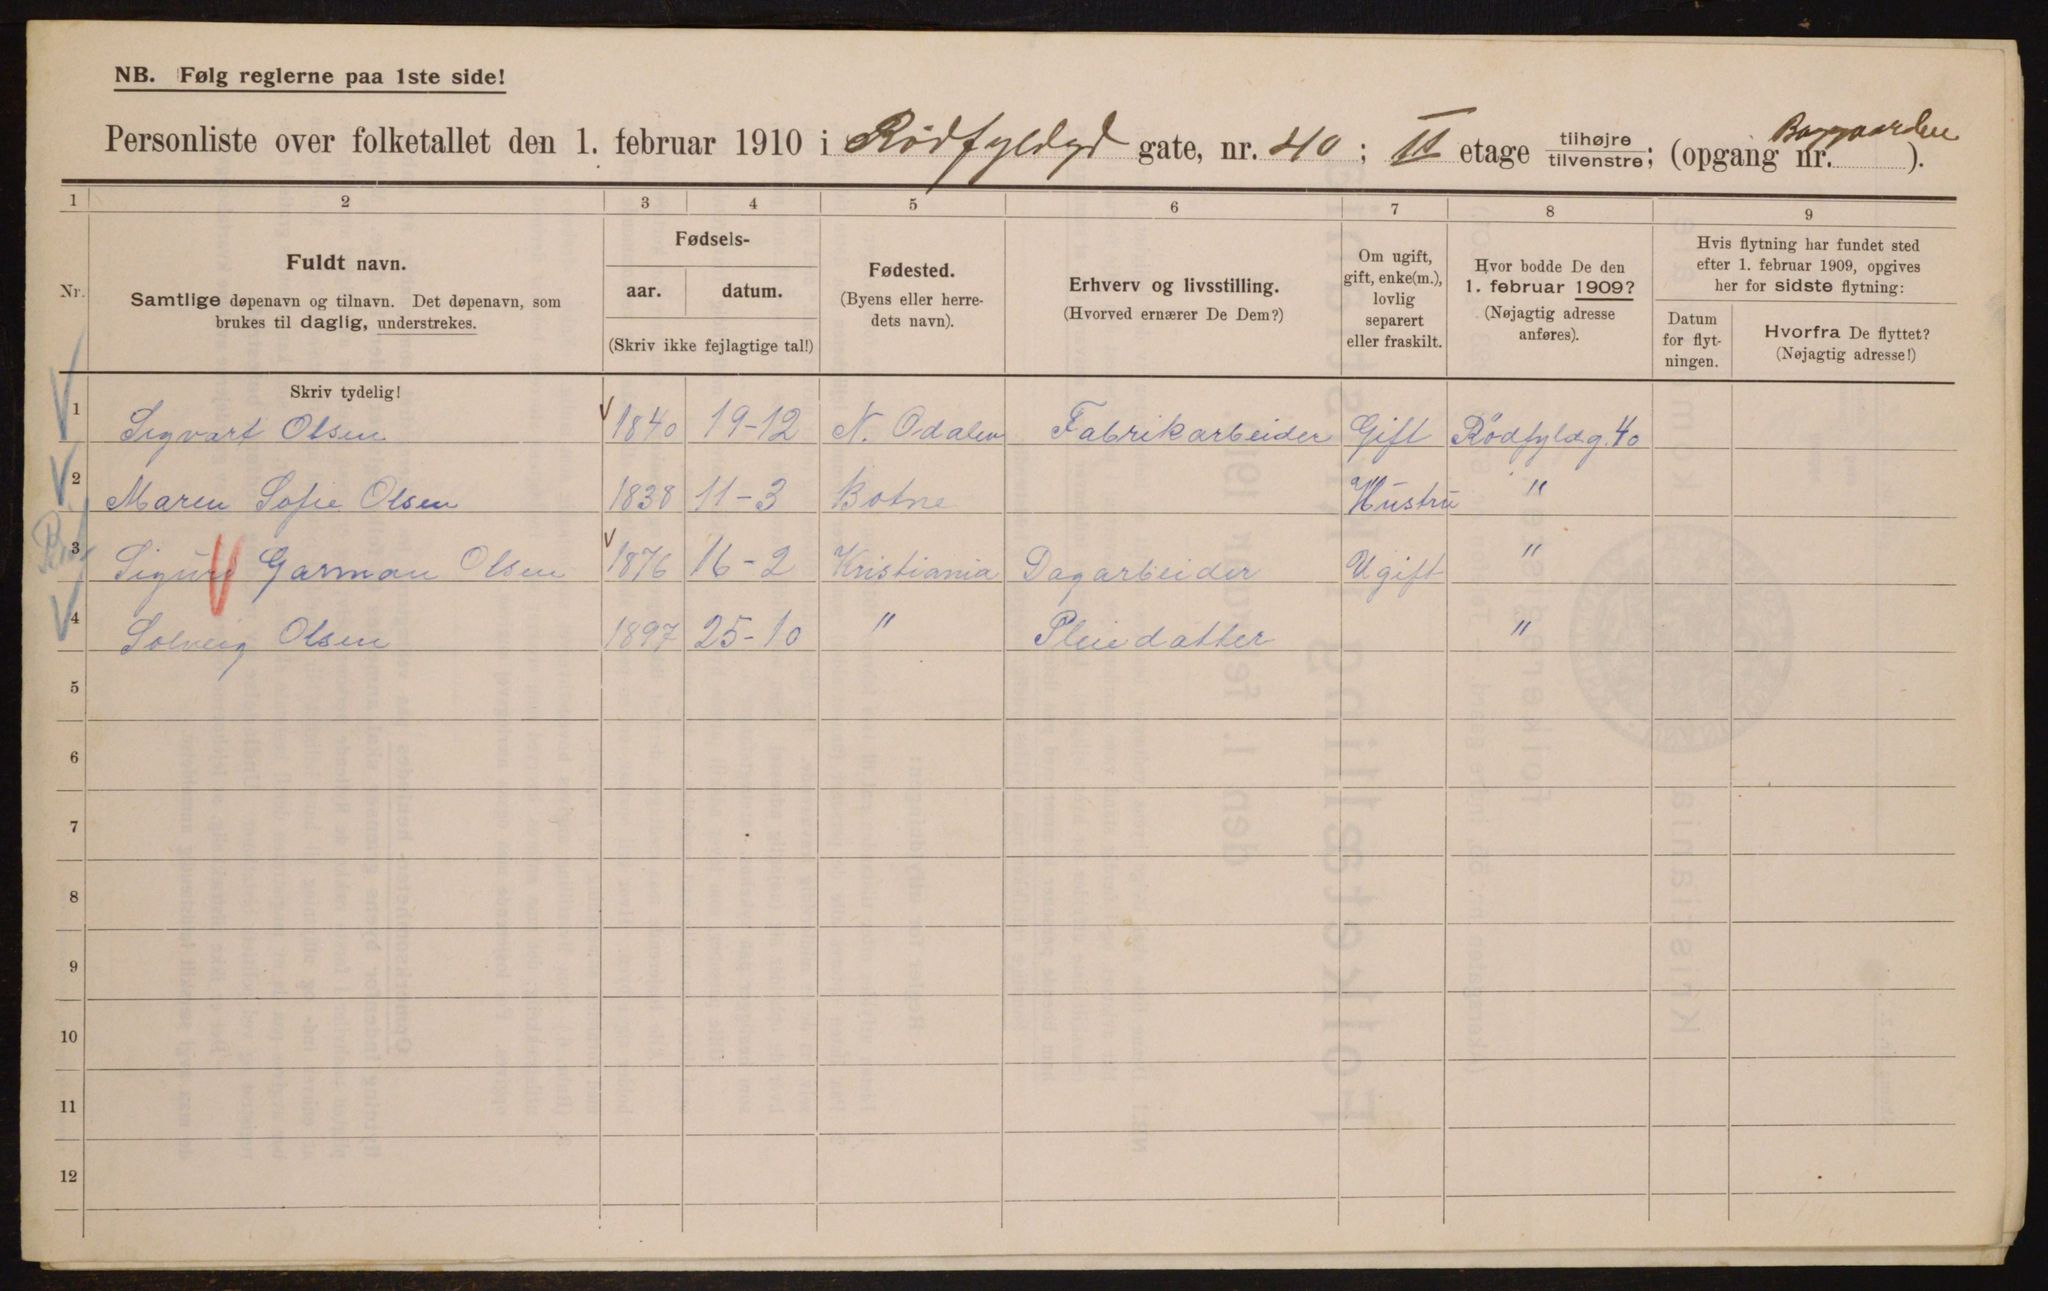 NB. Følg reglerne paa 1ste side!
Personliste over folketallet den 1. februar 1910 i Rødfyldgd gate, nr. 40; II etage tilhøjre/tilvenstre; (opgang nr. Baggaarden).
1 2 3 4 5 6 7 8 9
Nr.
Fuldt navn.
Samtlige døpenavn og tilnavn. Det døpenavn, som
brukes til daglig, understrekes.
Fødsels-
aar. datum.
(Skriv ikke fejlagtige tal!)
Fødested.
(Byens eller herre-
dets navn).
Erhverv og livsstilling.
(Hvorved ernærer De Dem?)
Om ugift,
gift, enke(m.),
lovlig
separert
eller fraskilt.
Hvor bodde De den
1. februar 1909?
(Nøjagtig adresse
anføres).
Hvis flytning har fundet sted
efter 1. februar 1909, opgives
her for sidste flytning:
Datum
for flyt-
ningen.
Hvorfra De flyttet?
(Nøjagtig adresse!)
Skriv tydelig!
1 Sigvart Olsen 1840 19-12 N. Odalen Fabrikarbeider Gift Rødfyldg. 40
2 Maren Sofie Olsen 1838 11-3 Botne Hustru "
3 Sigurd Garman Olsen 1876 16-2 Kristiania Dagarbeider Ugift "
4 Solveig Olsen 1897 25-10 " Pleiedatter "
5
6
7
8
9
10
11
12